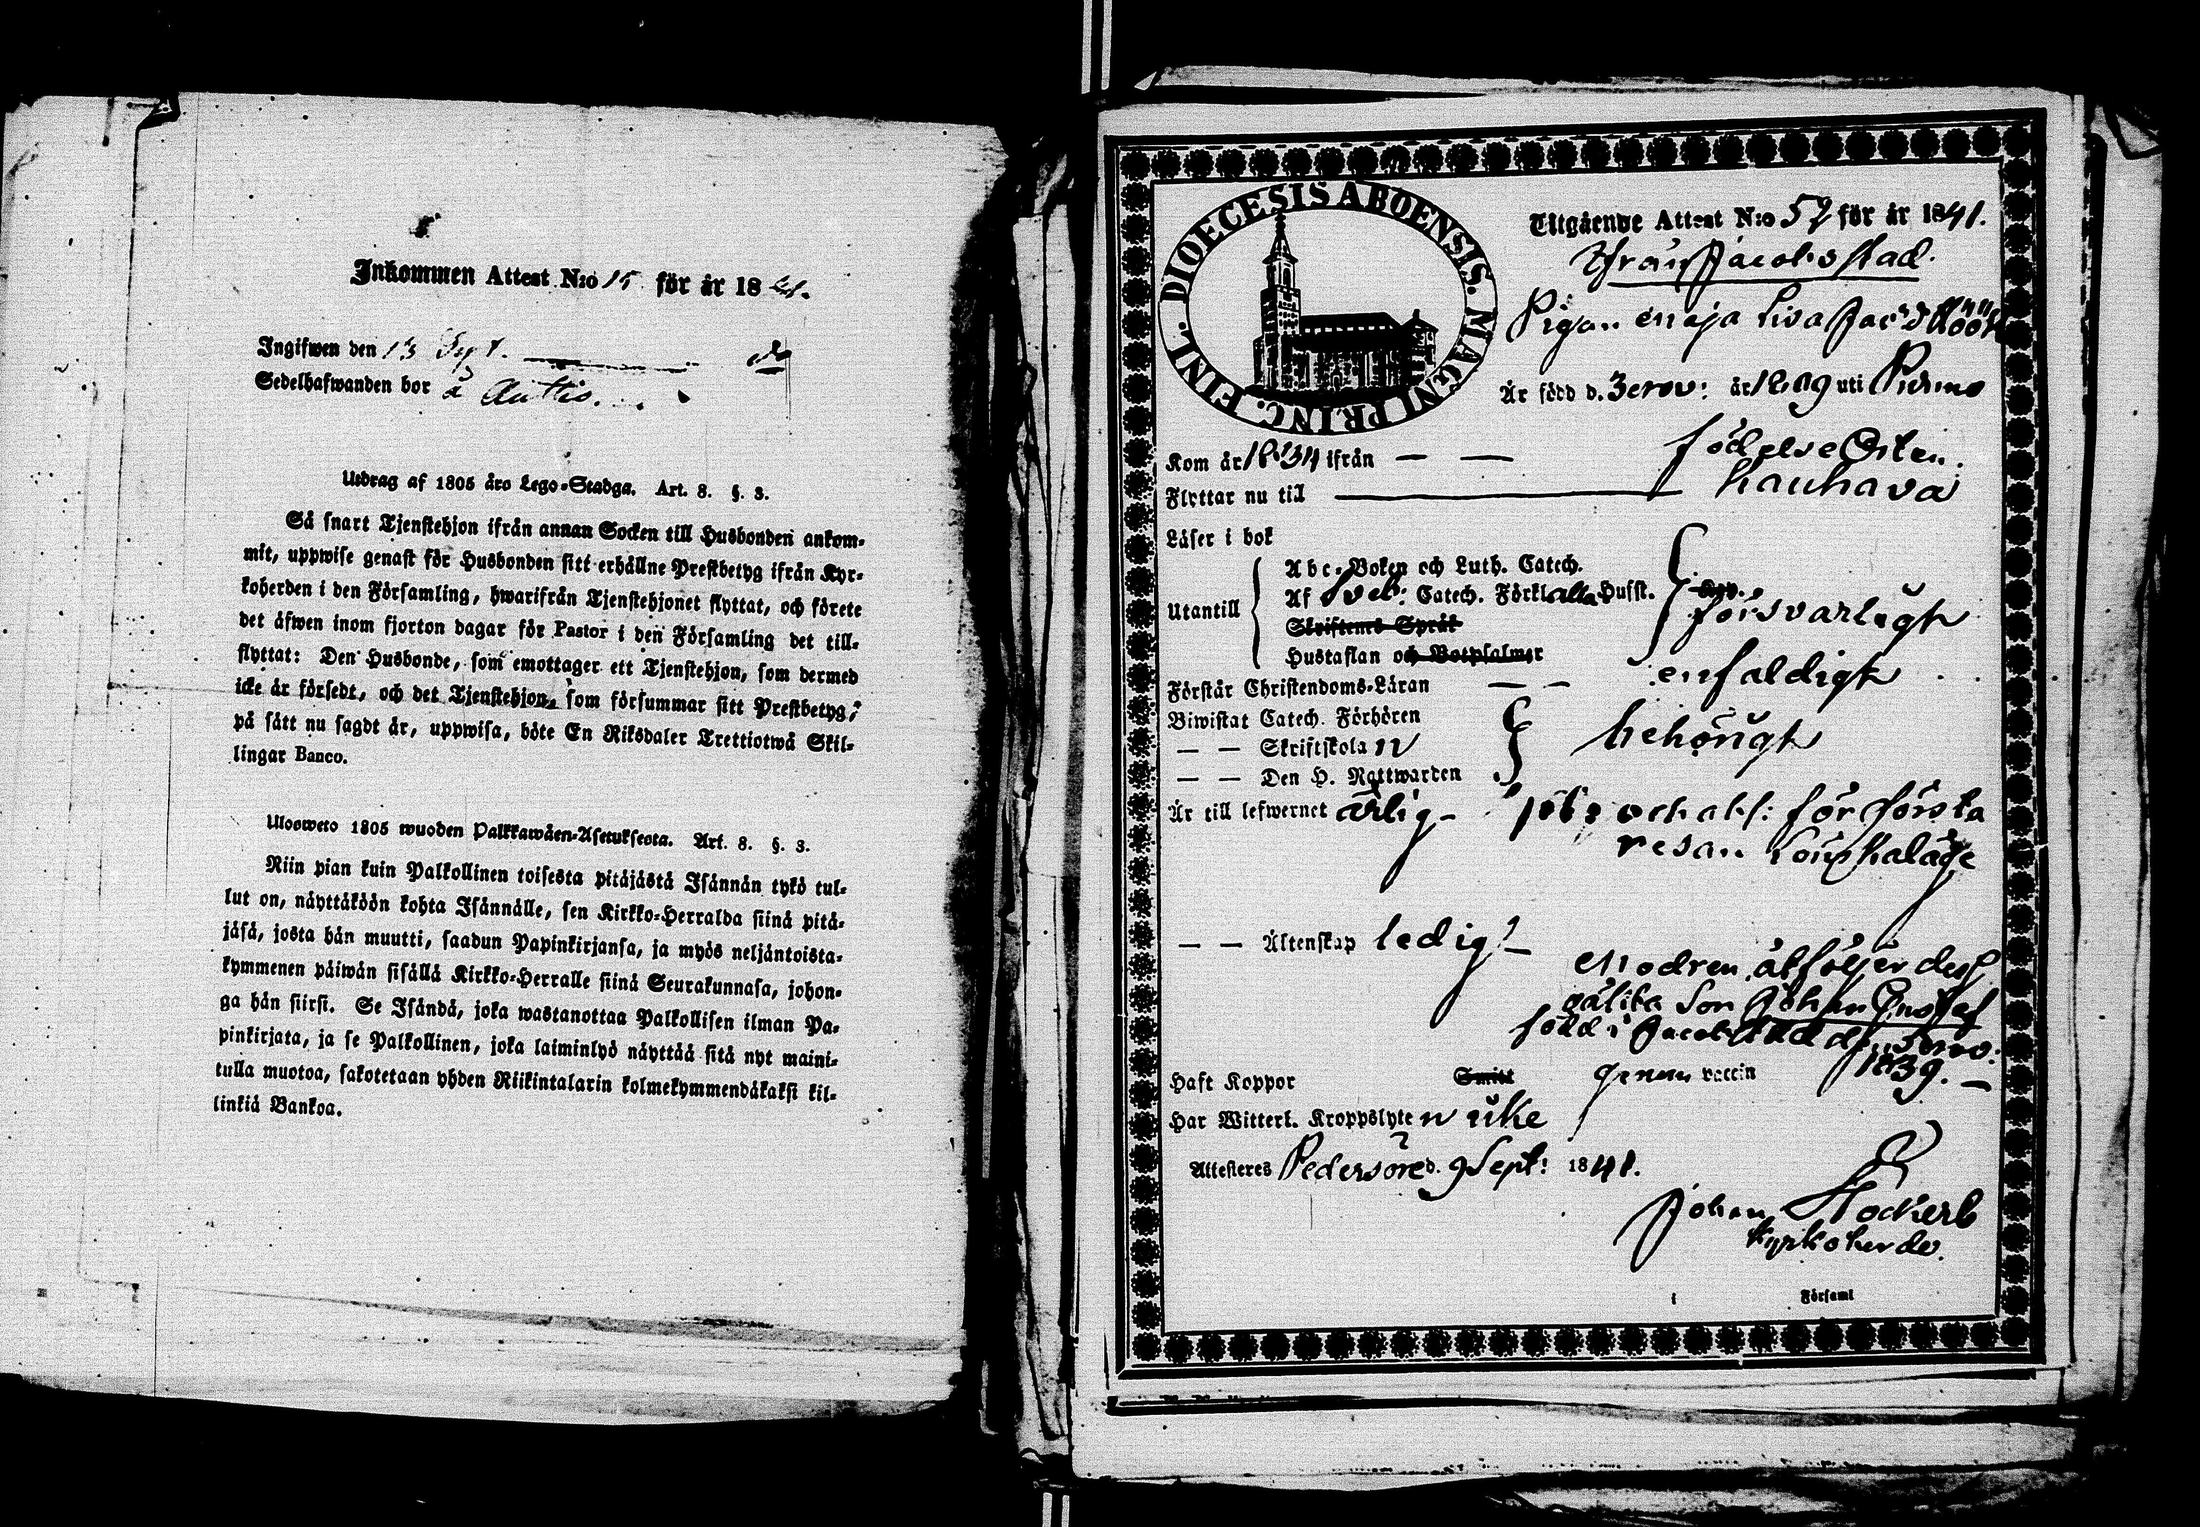 Inkommen Attest N:o 15 för år 1841.
Ingifwen den 13 Sept.
Sedelhafwanden bor å Auttis.
Utdrag af 1805 års Lego-Stadga. Art. 8. §. 3.
Så snart Tjenstehjon ifrån annan Socken till Husbonden ankom-
mit, uppwise genast för Husbonden sitt erhållne Prestbetyg ifrån Kyr-
koherden i den Församling, hwarifrån Tjenstehjonet flyttat, och förete
det äfwen inom fjorton dagar för Pastor i den Församling det till-
flyttat: Den Husbonde, som emottager ett Tjenstehjon, som dermed
icke är försedt, och det Tjenstehjon, som försummar sitt Prestbetyg,
på sätt nu sagdt är, uppwisa, böte En Riksdaler Trettiotwå Skil-
lingar Banco.
Ulosweto 1805 wuoden Palkkawäen-Asetuksesta. Art. 8. §. 3.
Niin pian kuin Palkollinen toisesta pitäjästä Isännän tykö tul-
lut on, näyttäköön kohta Isännälle, sen Kirkko-Herralda siinä pitä-
jäsä, josta hän muutti, saadun Papinkirjansa, ja myös neljäntoista-
kymmenen päiwän sisällä Kirkko-Herralle siinä Seurakunnasa, johon-
ga hän siirsi. Se Isändä, joka wastanottaa Palkollisen ilman Pa-
pinkirjata, ja se Palkollinen, joka laiminlyö näyttää sitä nyt maini-
tulla muotoa, sakotetaan yhden Riikintalarin kolmekymmendäkaksi kil-
linkiä Bankoa.
DIOECESIS ABOENSIS. MAGNI PRINC. FINL.
Utgående Attest N:o 57 för år 1841.
Ifrån Jacobstad.
Pigan Maja Lisa Jac:d Höök
Är född d. 3 Nov: år 1809 uti Purmo
Kom år 1834 ifrån — — födelse Orten.
Flyttar nu till Kauhava
Läser i bok
Utantill
Abc-Boken och Luth. Catech.
Af Sveb: Catech. Förkl alla Husst.
försvarligt
Skriftens Språk
Hustaflan och Botpsalmer
Förstår Christendoms-Läran — — enfaldigt
Biwistat Catech. Förhören
— — Skriftskola n behörigt
— — Den H. Nattwarden
Är till lefwernet ärlig — och abs: för första
resan Lönskaläge
— — Äktenskap ledig —
Modren åtföljer dess
oäkta Son Johan Gustaf
född i Jacobstad d. Nov:
1839. —
Haft Koppor Smitt genom vaccin
Har Witterl. Kroppslyte n uke
Attesteres Pedersöre d. 9 Sept: 1841.
Johan
Kyrkoherde.
i Församl